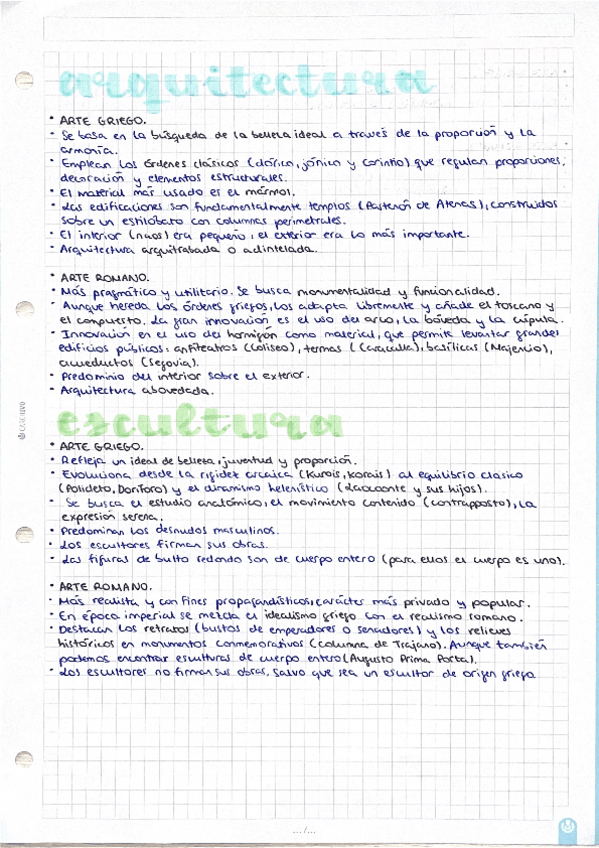 arquitectura
• ARTE GRIEGO.
• Se basa en la búsqueda de la belleza ideal a través de la proporción y la
armonía.
• Emplean los órdenes clásicos (dórico, jónico y corintio) que regulan proporciones,
decoración y elementos estructurales.
• El material más usado es el mármol.
• Las edificaciones son fundamentalmente templos (Partenón de Atenas), construidos
sobre un estilóbato con columnas perimetrales.
• El interior (naos) era pequeño, el exterior era lo más importante.
• Arquitectura arquitrabada o adintelada.
• ARTE ROMANO.
• Más pragmático y utilitario. Se busca monumentalidad y funcionalidad.
• Aunque hereda los órdenes griegos, los adapta libremente y añade el toscano y
el compuesto. La gran innovación es el uso del arco, la bóveda y la cúpula.
• Innovación en el uso del hormigón como material, que permite levantar grandes
edificios públicos: anfiteatros (Coliseo), termas (Caracalla), basílicas (Majencio),
acueductos (Segovia).
• Predominio del interior sobre el exterior.
• Arquitectura abovedada.
escultura
• ARTE GRIEGO.
• Refleja un ideal de belleza, juventud y proporción.
• Evoluciona desde la rigidez arcaica (Kurois, Korais) al equilibrio clásico
(Policleto, Doriforo) y el dinamismo helenístico (Laocoonte y sus hijos).
• Se busca el estudio anatómico, el movimiento contenido (contrapposto), la
expresión serena.
• Predominan los desnudos masculinos.
• Los escultores firman sus obras.
• Las figuras de bulto redondo son de cuerpo entero (para ellos el cuerpo es uno).
• ARTE ROMANO.
• Más realista y con fines propagandísticos, carácter más privado y popular.
• En época imperial se mezcla el idealismo griego con el realismo romano.
• Destacan los retratos (bustos de emperadores o senadores) y los relieves
históricos en monumentos conmemorativos (columna de Trajano). Aunque también
podemos encontrar esculturas de cuerpo entero (Augusto Prima Porta).
• Los escultores no firman sus obras, salvo que sea un escultor de origen griego
.../...